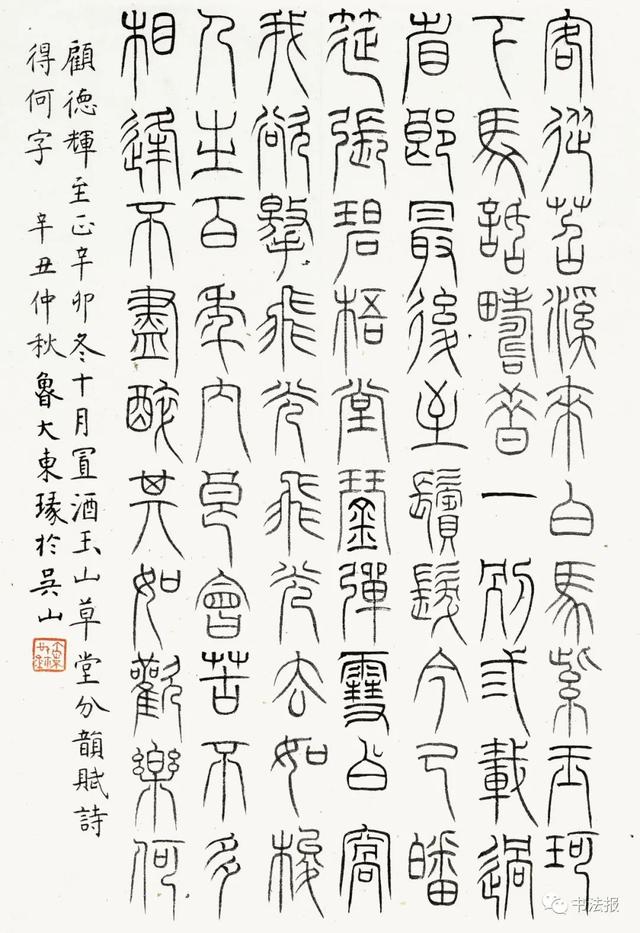 客從苕溪來白馬紫玉珂
下馬話疇昔一別弍載過
省郎最後至鬢髮今已皤
筵張碧梧堂琴彈雪白窩
我欲擊飛光飛光去如梭
人生百年內良會苦不多
相逢不盡醉其如歡樂何
顧德輝至正辛卯冬十月置酒玉山草堂分韻賦詩
得何字 辛丑仲秋魯大東瑑於吳山
书法报